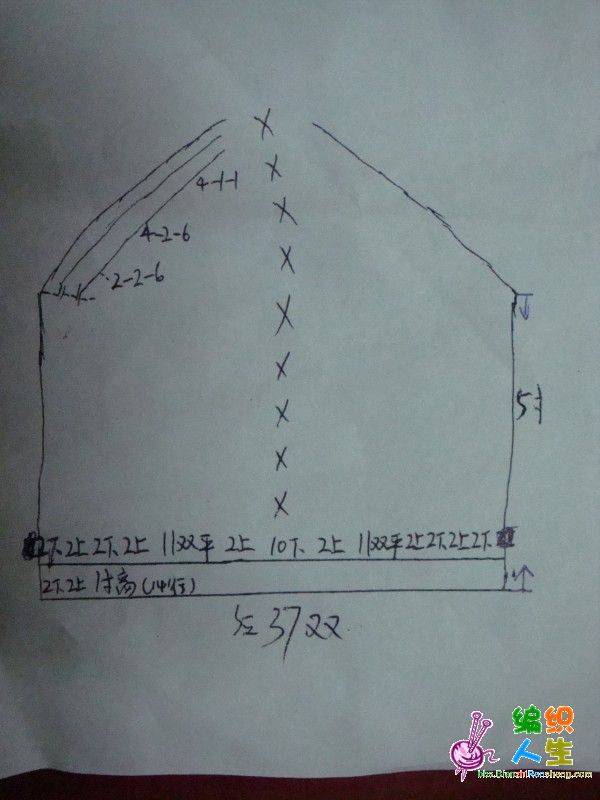 X
X
4-1-1
X
4-2-6
X
2-2-6
X
5寸
X
X
X
X
2下 2上 2下 2上 11双平 2上 10下 2上 11双平 2上 2下 2上 2下
2下 2上 1寸高(14行)
1寸
37双
编织
人生